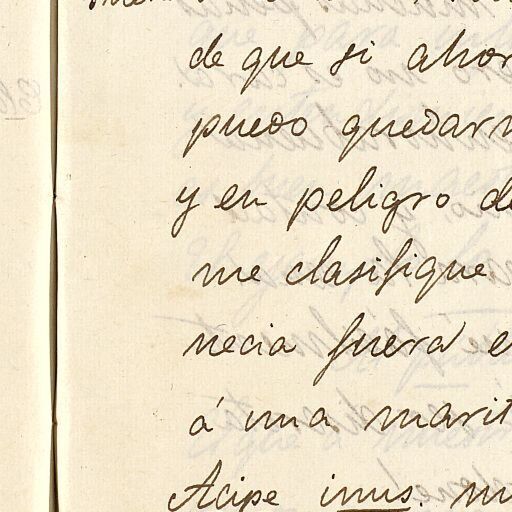 de que si ahor
puedo quedarm
y en peligro de
me clasifique
necia fuera e
á una marit
Acipe imus. m